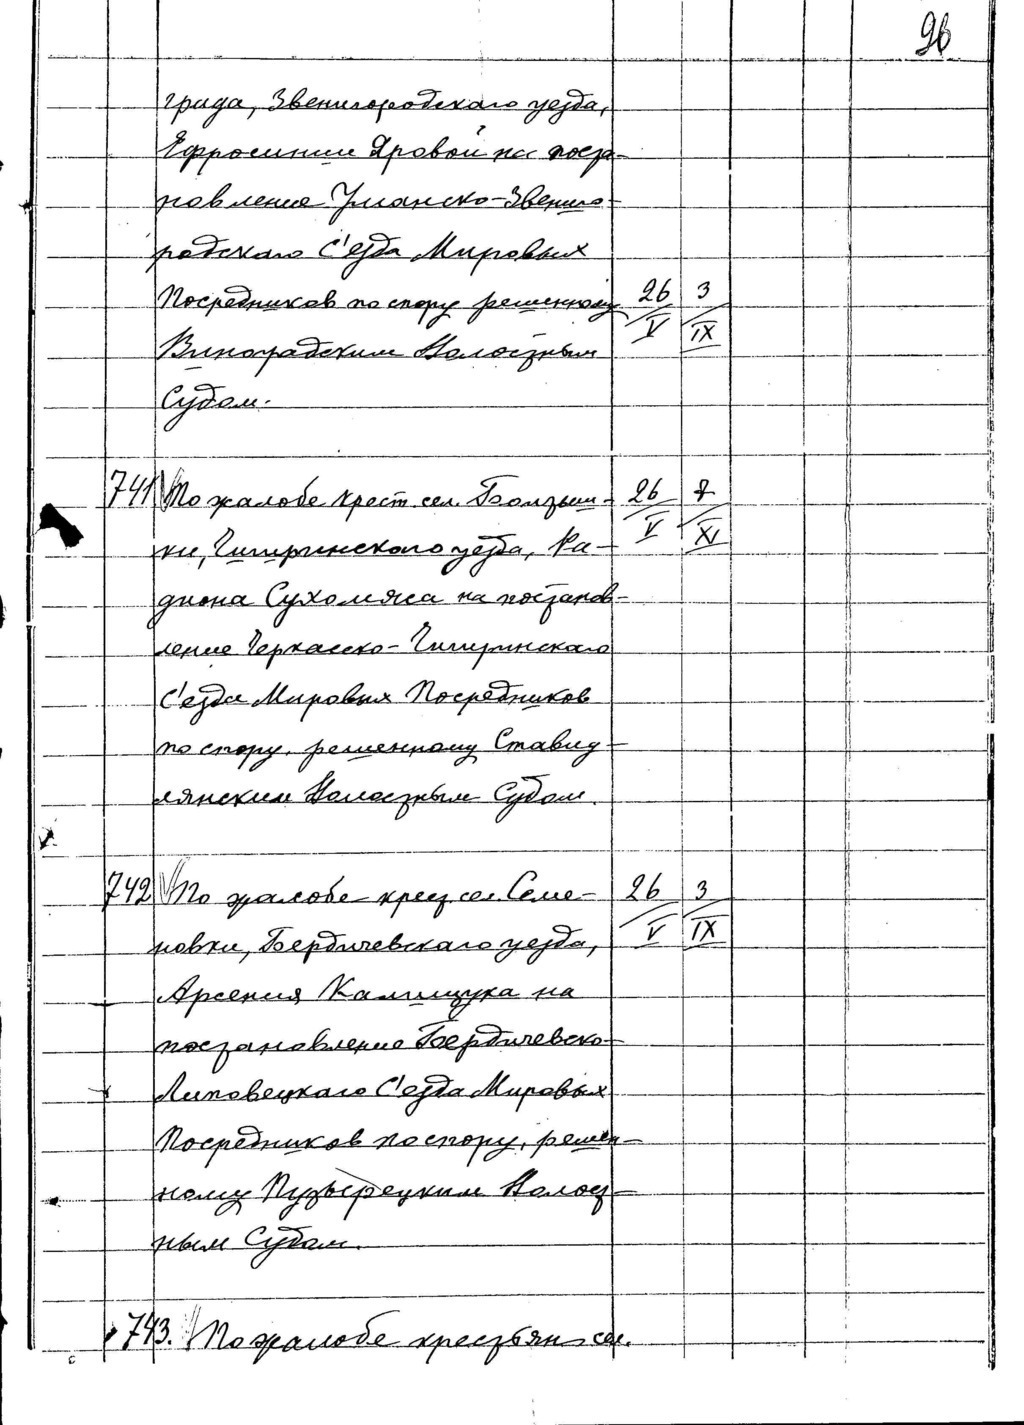 96
града, Звенигородскаго уезда,
Ефросинии Яровой на поста-
новление Уманско-Звениго-
родскаго С'езда Мировых
Посредников по спору решенному 26/V 3/IX
Виноградским Волостным
Судом.
741 По жалобе крест. сел. 26/V XI
ки, Чигиринского уезда, Ра-
диона Сухомяса на постанов-
ление Черкасско-Чигиринскаго
С'езда Мировых Посредников
по спору, решенному Ставид-
лянским Волостным Судом.
742 По жалобе крест. сел. Семе- 26/V 3/IX
новки, Бердичевскаго уезда,
Арсения Калищука на
постановление Бердичевско-
Липовецкаго С'езда Мировых
Посредников по спору, решен-
ному Пузырецким Волост-
ным Судом.
743. По жалобе крестьян. сел.